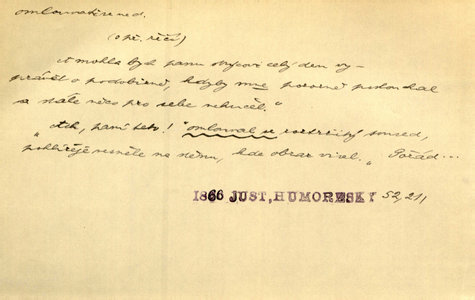 omlouvati se ned.
(o př. řeči)
"A mohla bych panu strýcovi celý den vy-
právět o podobizně, kdyby mne pozorně poslouchal
a stále něco pro sebe nehučel."
"Ach, paní teto!" omlouval se roztržitý soused,
pohlížeje nesměle na stěnu, kde obraz visel. "Pořád...
1866 JUST, HUMORESKY 52, 211